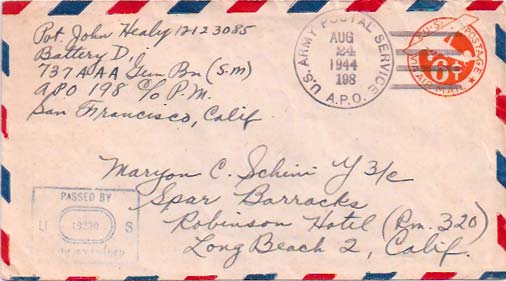 Pvt. John Healy 12123085
Battery D,
737 AAA Gun Bn (S.M)
APO 198 C/o P.M.
San Francisco, Calif
U.S. ARMY POSTAL SERVICE
AUG
24
1944
198
A.P.O.
U.S. POSTAGE
6¢
VIA AIR MAIL
Maryon C. Schini Y 3/c
Spar Barracks
Robinson Hotel (Rm. 320)
Long Beach 2, Calif.
PASSED BY
U S